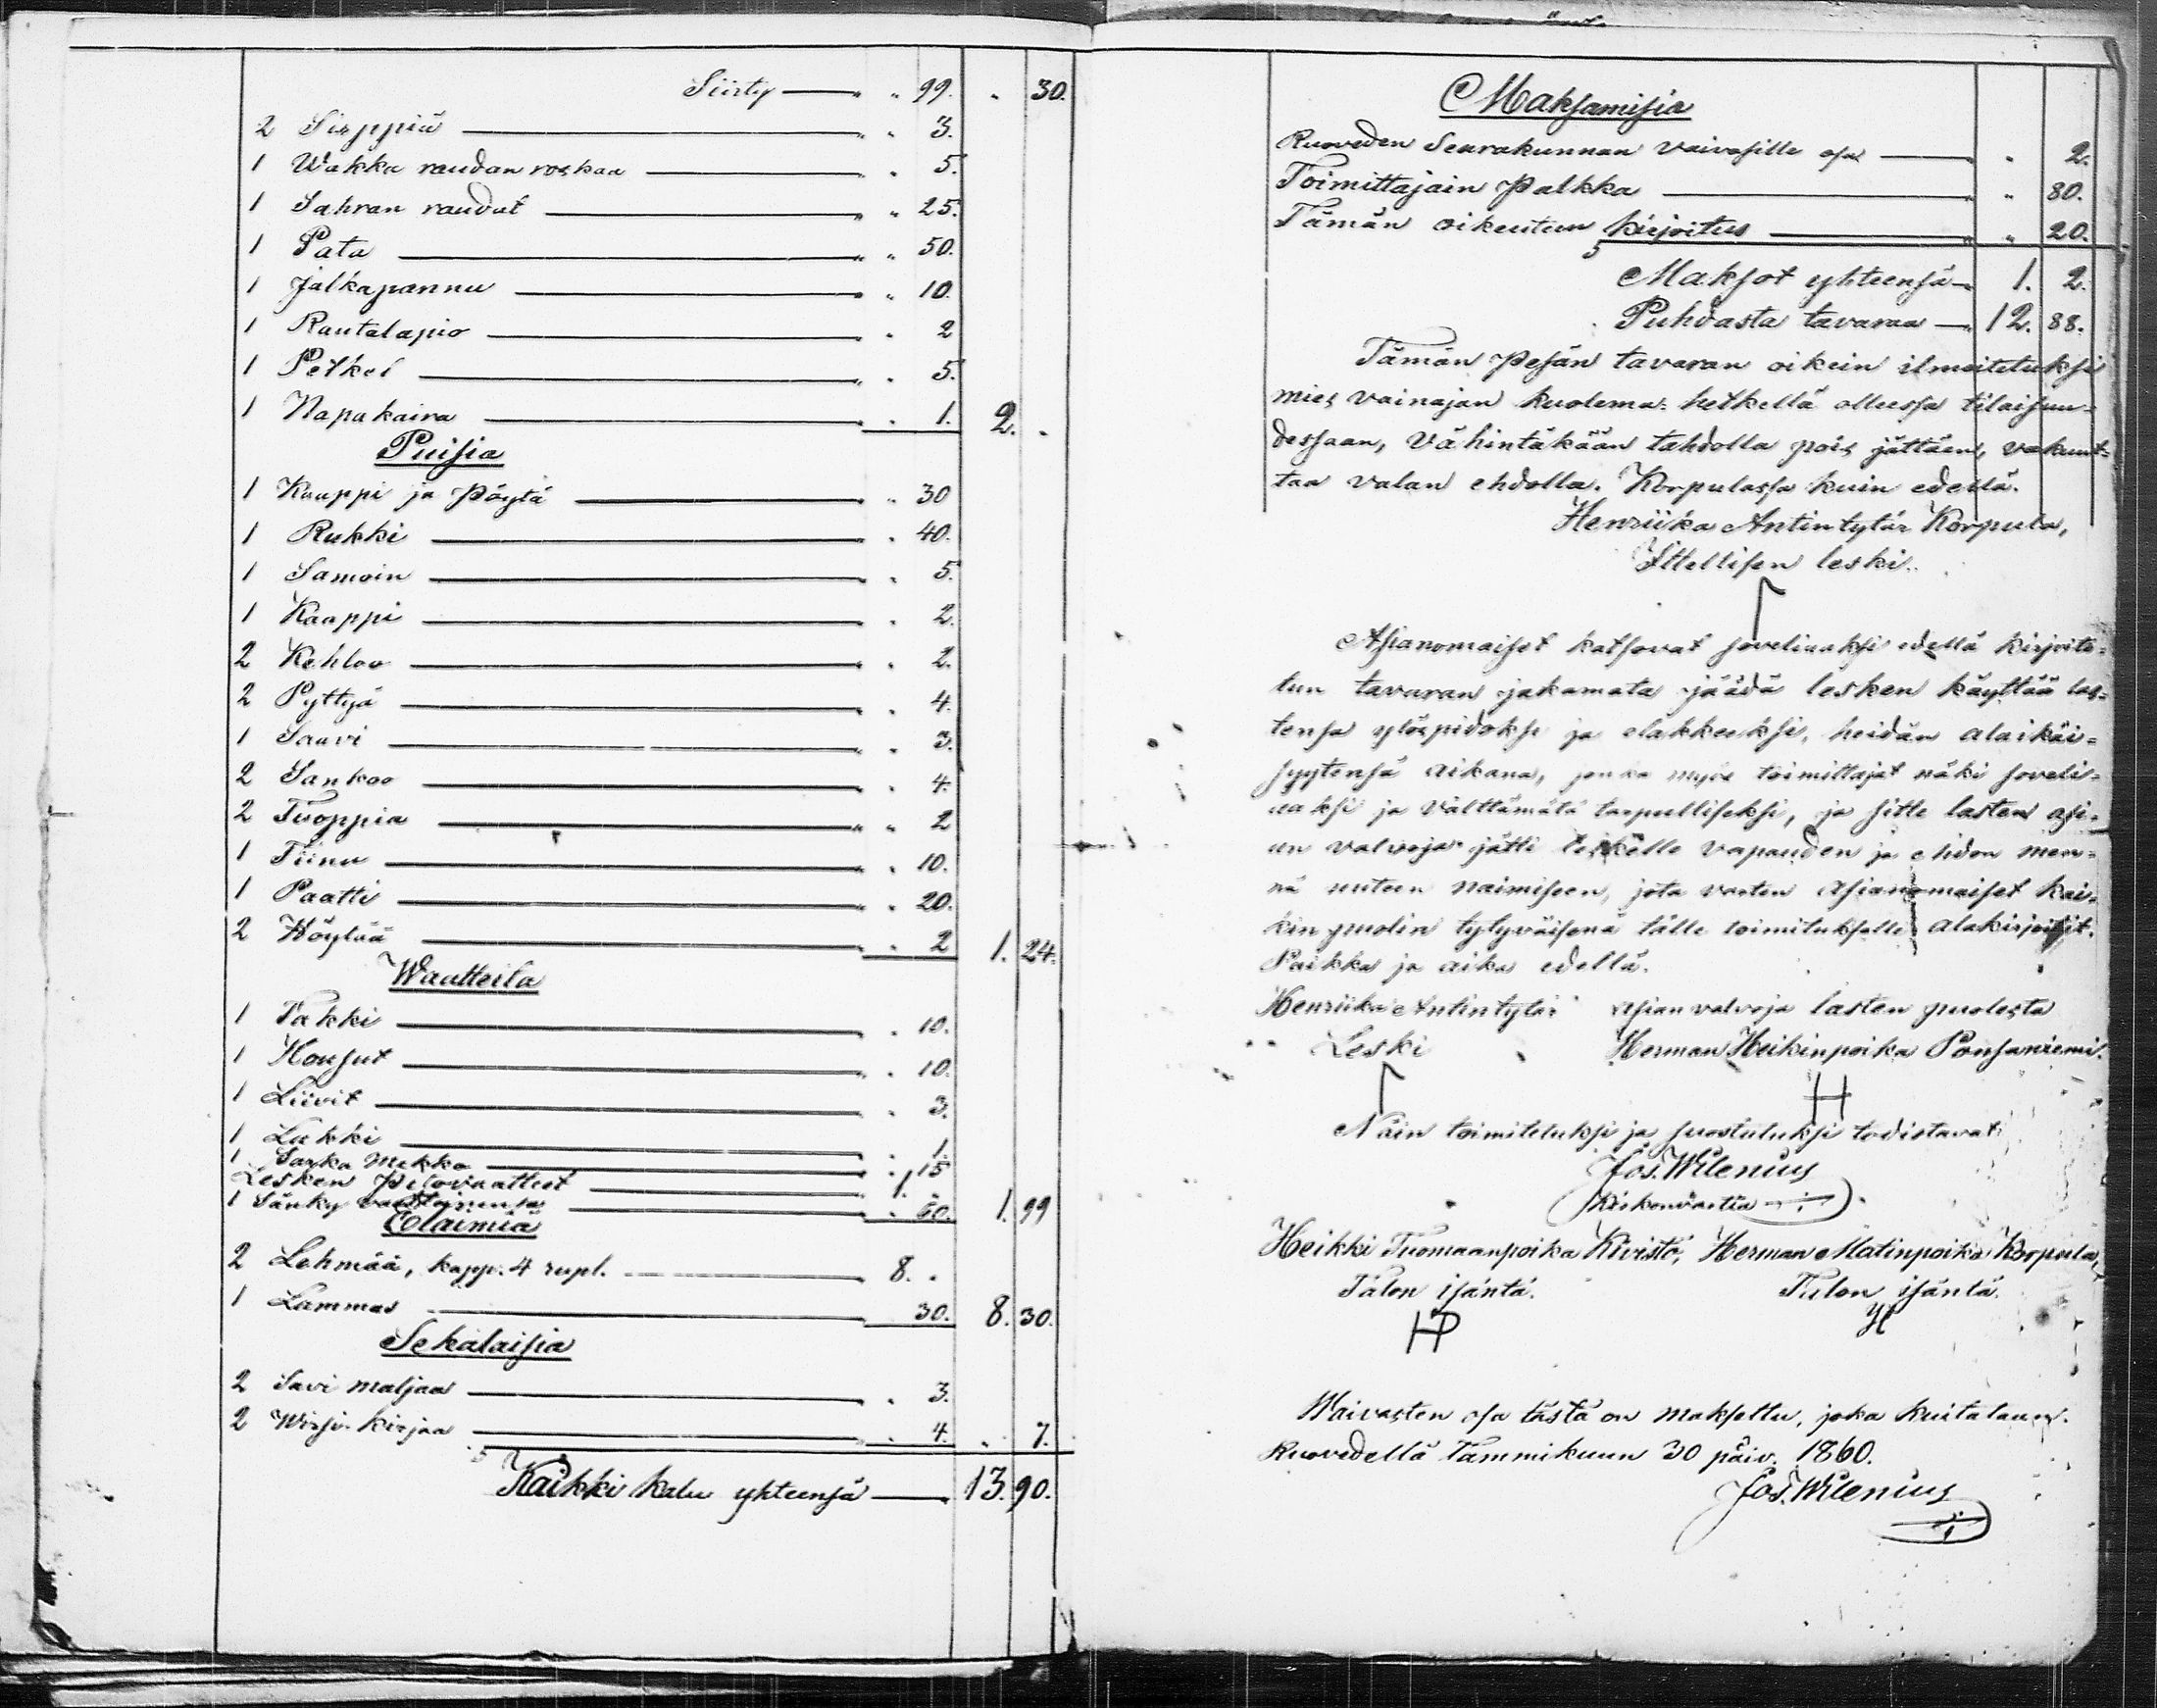 Siirty — " 99. " 30.
2 Sirppiä — " " 3.
1 Wakka raudan roskaa — " 5.
1 Sahran raudat — " " 25.
1 Pata — " " 50.
1 Jalkapannu — " 10.
1 Rautalapio — " 2
1 Petkel — " " 5.
1 Napakaira — " 1. 2. "
Puisia
1 Kaappi ja Pöytä — " 30
1 Rukki — " 40.
1 Samoin — " 5.
1 Kaappi — " 2.
2 Kehloo — " 2.
2 Pyttyä — " 4.
1 Saavi — " 3.
2 Sankoo — " 4.
2 Tuoppia — " " 2
1 Tiinu — " 10.
1 Paatti — " " 20.
2 Höylää — " 2 1. 24.
Waatteita
1 Takki — " 10.
1 Housut — " " 10.
1 Liivit — " 3.
1 Lakki — " 1.
1 Sarka Mekko — " 15
Lesken Pitovaatteet — 1. "
1 Sänky — " 60. 1. 99
Eläimiä
2 Lehmää, kapp. 4 rupl. — 8. "
1 Lammas — 30. 8. 30.
Sekalaisia
2 Savi maljaa — " 3.
2 Wirsi-kirjaa — " 4. " 7.
Kaikki kalu yhteensä — 13. 90.
Maksamisia
Ruoveden Seurakunnan Vaivasille osa — " 2.
Toimittajain Palkka — " 80.
Tämän oikeutun kirjoitus — " 20.
Maksot yhteensä — 1. 2.
Puhdasta tavaraa — 12. 88.
Tämän Pesän tavaran oikein ilmoitetuksi
mies vainajan kuolema-hetkellä ollessa tilaisuu-
dessaan, Vähintäkään tahdolla pois jättäen, vakuut-
taa valan ehdolla. Korpulassa kuin edellä.
Henriika Antintytär Korpula,
Ittellisen leski.
Asianomaiset katsovat soveliaaksi edellä kirjoite-
tun tavaran jakamata jäädä lesken käyttää las-
tensa ylöspidoksi ja elakkeeksi, heidän alaikäi-
syytensä aikana, jonka myös toimittajat näki soveli-
aaksi ja Välttämätä tarpeelliseksi, ja sitte lasten asi-
an valvoja jätti leskelle vapauden ja ehdon men-
nä uuteen naimiseen, jota vasten Asianomaiset kai-
kin puolin tytyväisenä tälle toimitukselle alakirjoitit.
Paikka ja aika edellä.
Henriika Antintytär Asian valvoja lasten puolesta
Leski Herman Heikinpoika Ponsaniemi.
H
Näin toimitetuksi ja suostutuksi todistavat
Jos. Wilenius
Kiskonvaetia
Heikki Tuomaanpoika Kivistö, Herman Matinpoika Korpula,
Talon isäntä. Talon isäntä.
Waivasten osa tästä on maksettu, joka kuitataan.
Ruovedellä Tammikuun 30 päiv. 1860.
Jos. Wilenius